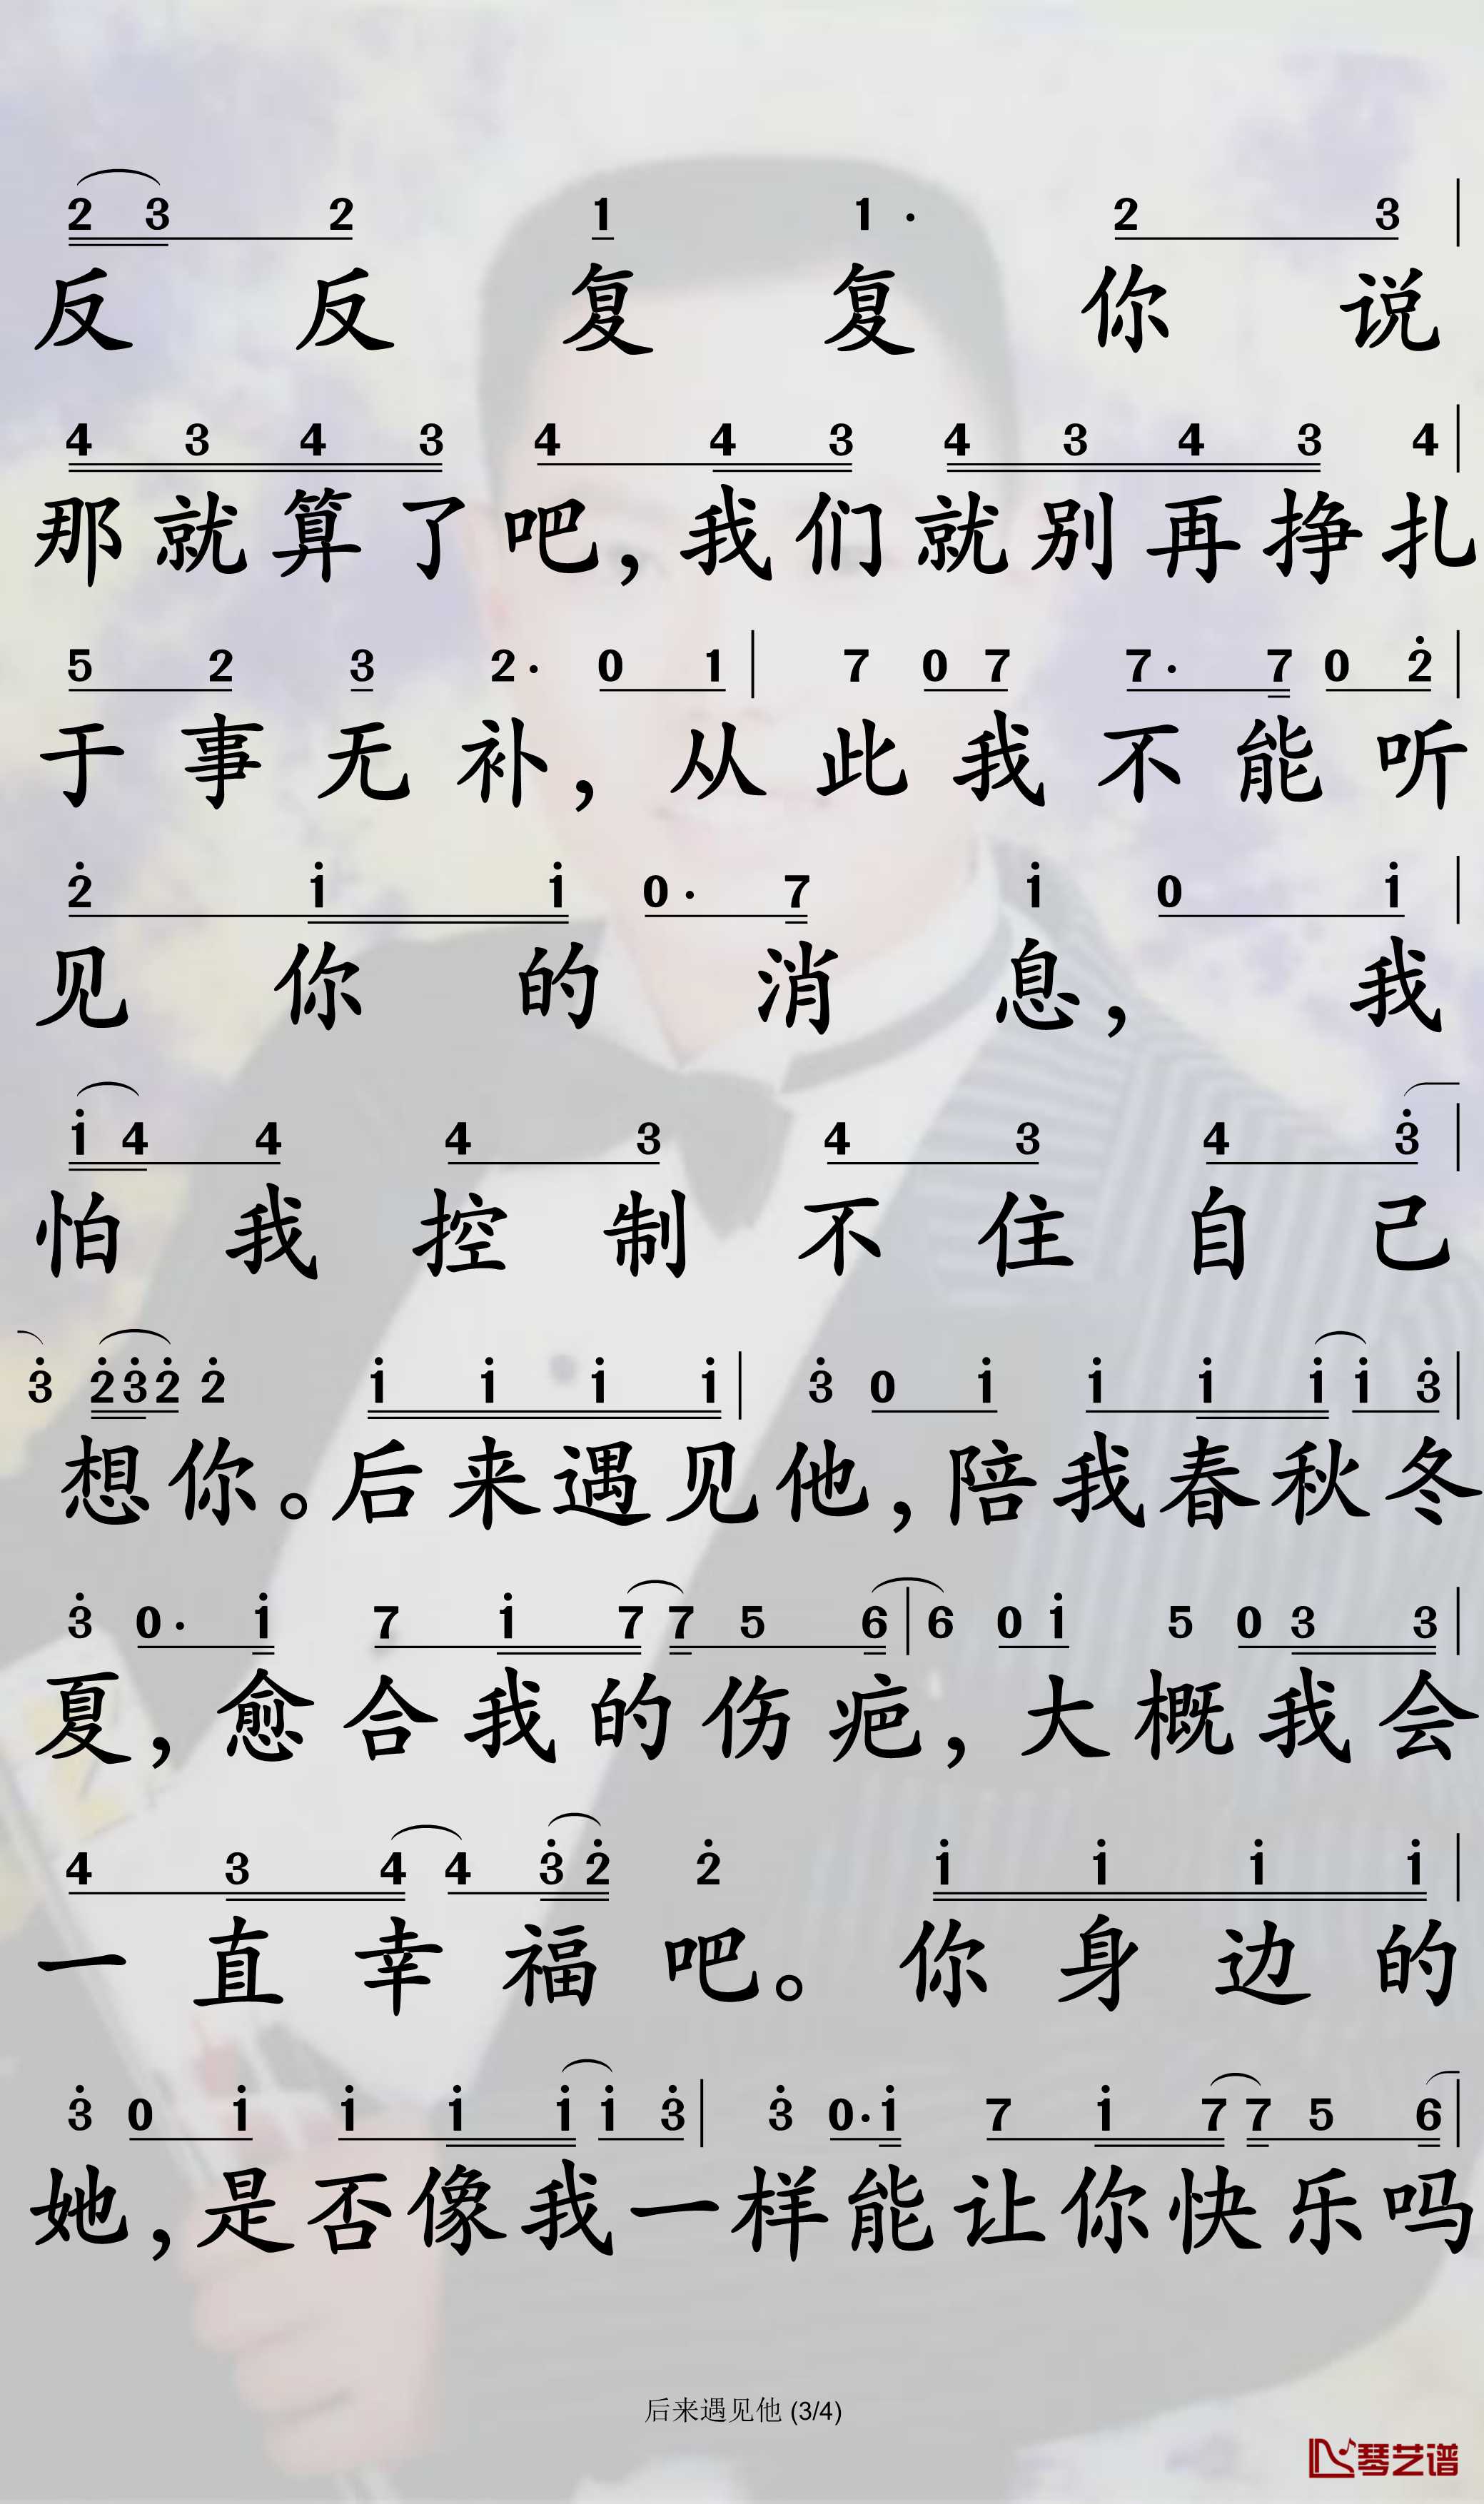 2 3 2 1 1 · 2 3
反 反 复 复 你 说
4 3 4 3 4 4 3 4 3 4 3 4
那 就 算 了 吧, 我 们 就 别 再 挣 扎
5 2 3 2· 0 1 7 0 7 7· 7 0 2
于 事 无 补, 从 此 我 不 能 听
2 1 1 0· 7 1 0 1
见 你 的 消 息, 我
1 4 4 4 3 4 3 4 3
怕 我 控 制 不 住 自 己
3 2 3 2 2 1 1 1 1 3 0 1 1 1 1 1 3
想 你。后 来 遇 见 他, 陪 我 春 秋 冬
3 0· 1 7 1 7 7 5 6 6 0 1 5 0 3 3
夏, 愈 合 我 的 伤 疤, 大 概 我 会
4 3 4 4 3 2 2 1 1 1 1
一 直 幸 福 吧。 你 身 边 的
3 0 1 1 1 1 1 3 3 0· 1 7 1 7 7 5 6
她, 是 否 像 我 一 样 能 让 你 快 乐 吗
后来遇见他 (3/4)
琴艺谱